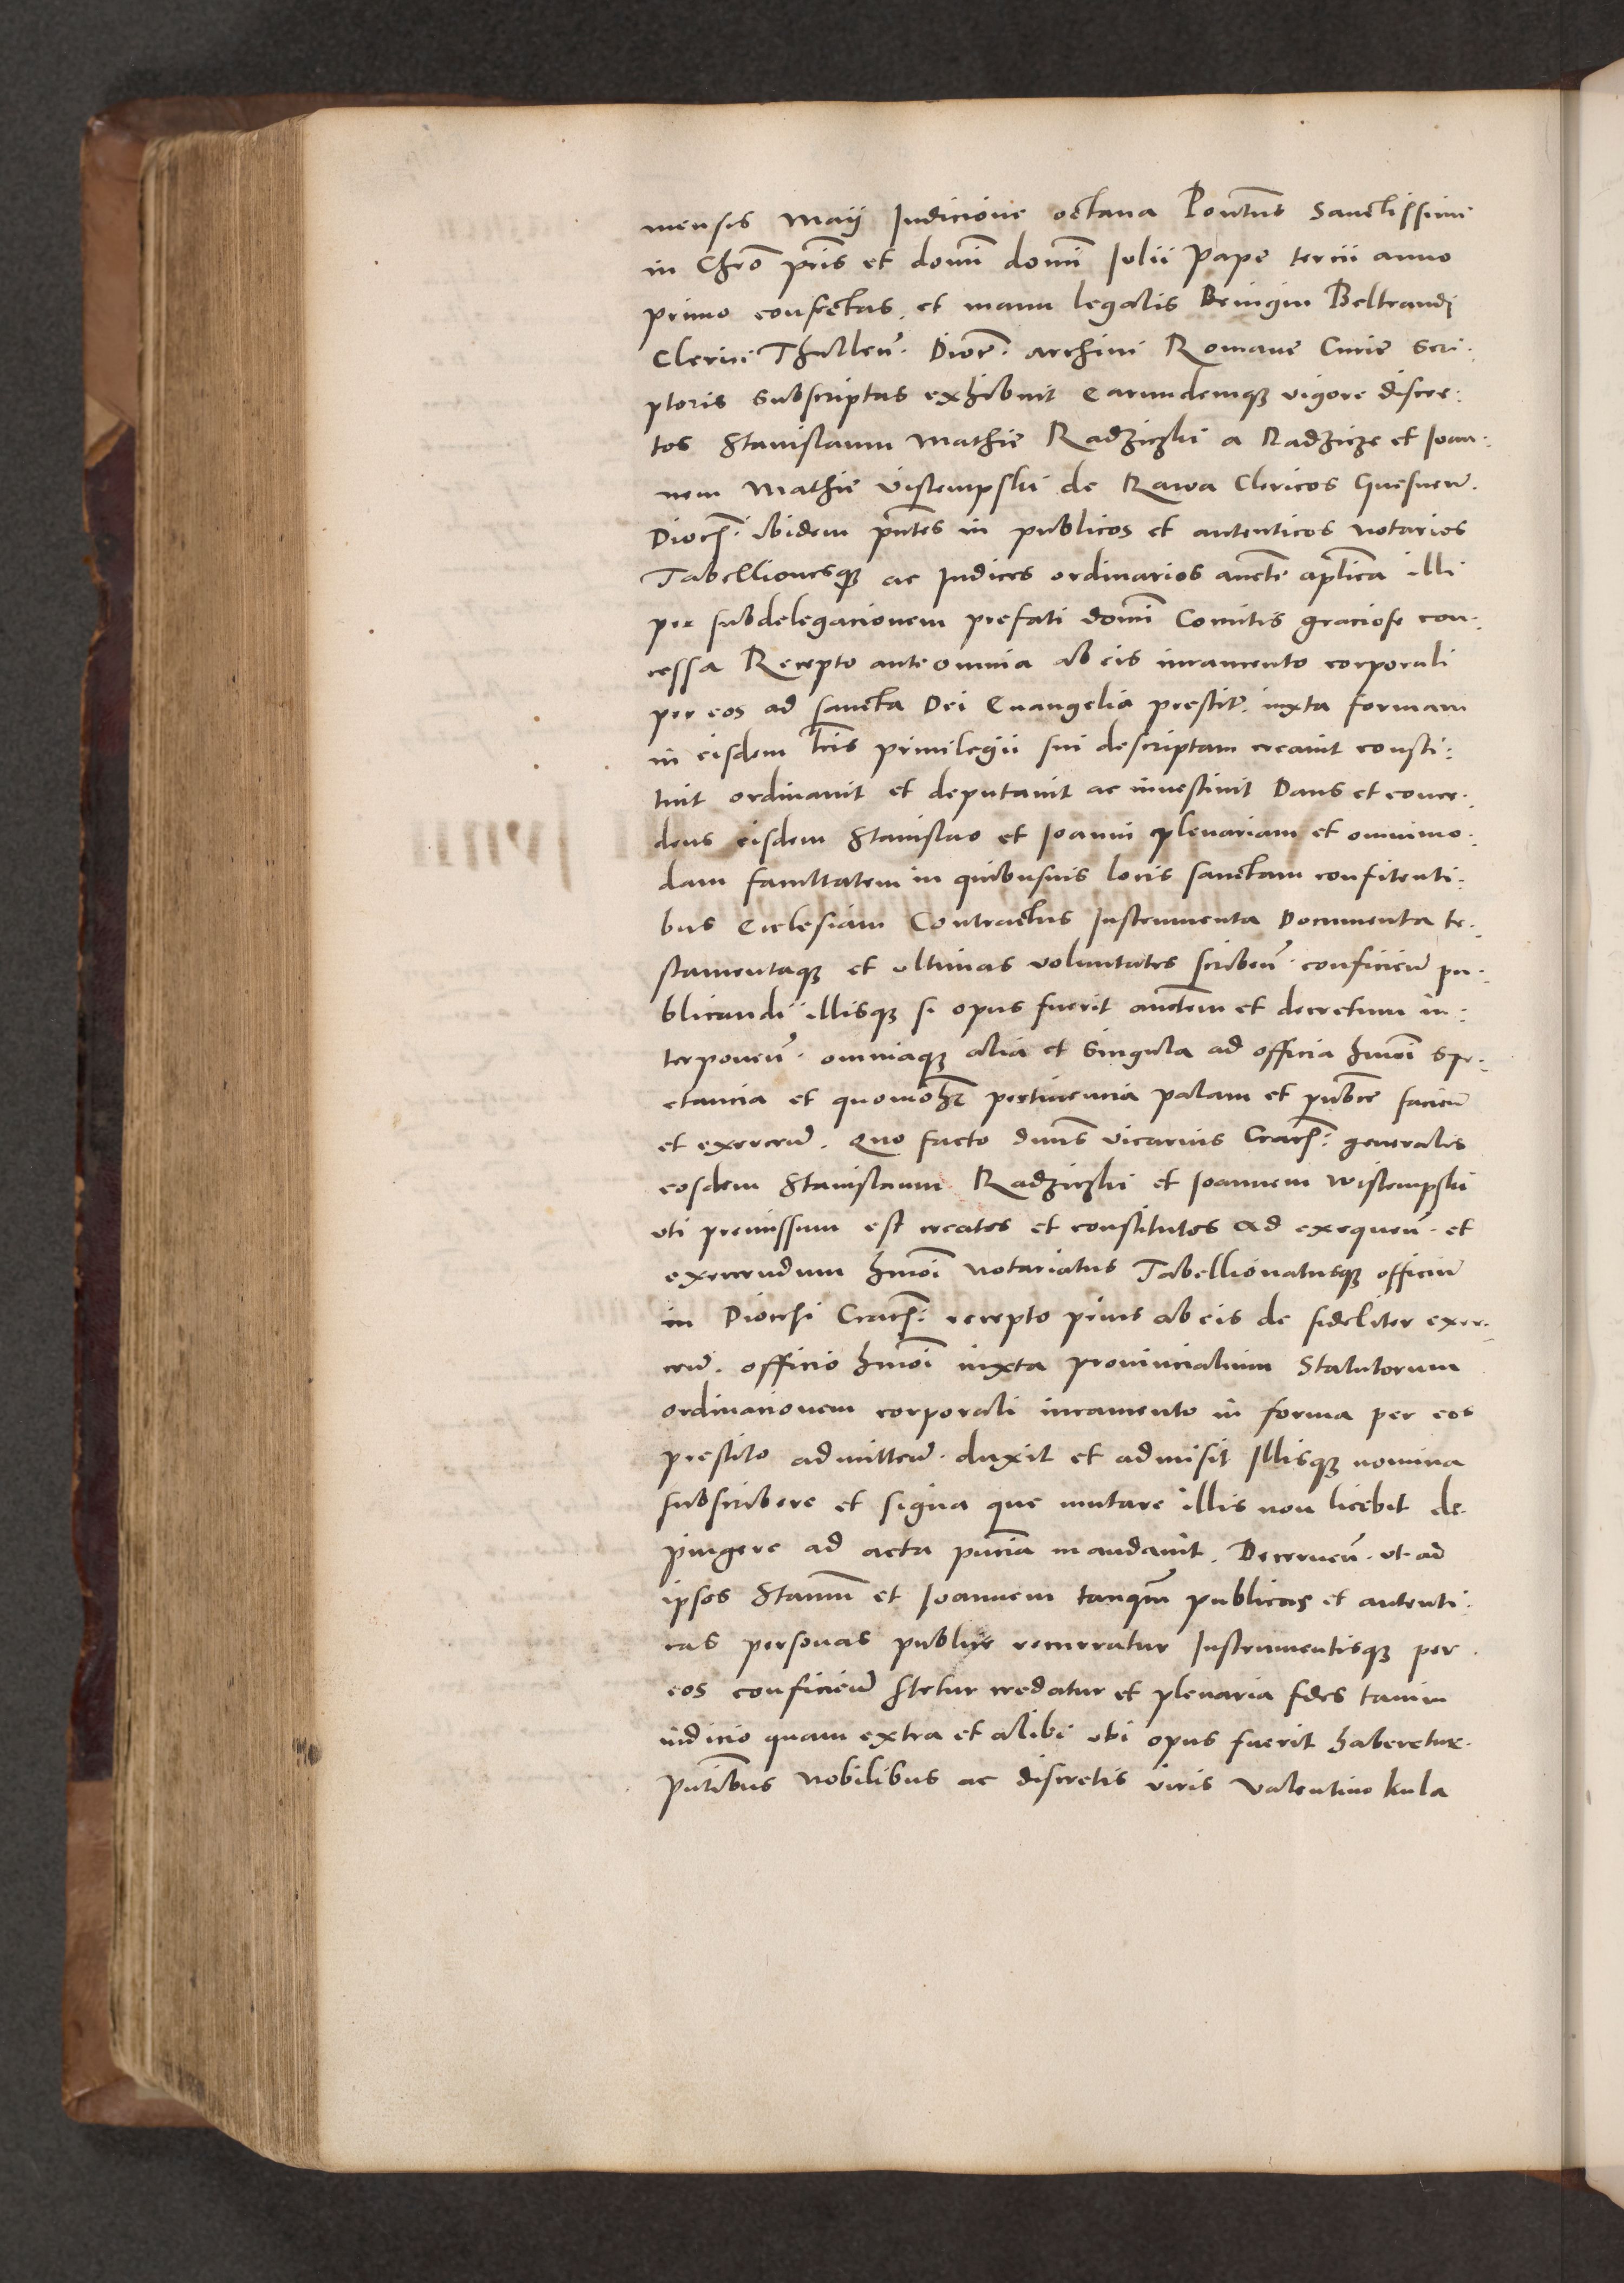 mensis Maij Indicione octaua Pontus Sanctissimi
in Chro pris et domi domi Julii Pape tercii anno
primo confectas. et manu legalis Benigni Beltrandi
Clerici Thullen. Dioc. archivi Romane Curie Scri:
ptoris subscriptas exhibuit Earundemque vigore discre:
tos Stanislaum Mathie Radziczki a Radzicze et Joan:
nem Mathie Vistempski de Rawa Clericos Gnesnen.
Dioces. ibidem pntes in publicos et autenticos notarios
Tabellionesque ac Iudices ordinarios aucte aplica illi
per subdelegacionem prefati domi Comitis graciose con:
cessa Recepto ante omnia ab eis iuramento corporali
per eos ad sancta Dei Euangelia prestit. iuxta formam
in eisdem lris priuilegii sui descriptam creauit consti:
tuit ordinauit et deputauit ac inuestiuit Dans et conce:
dens eisdem Stanislao et Joanni plenariam et omnimo:
dam facultatem in quibusuis locis sanctam confitenti:
bus Ecclesiam Contractus Instrumenta Documenta te:
stamentaque et ultimas voluntates scriben. conficien pu:
blicandi illisque si opus fuerit auctem et decretum in:
terponen. omniaque alia et singula ad officia hmoi spe:
ctancia et quomolz pertinencia palam et publce facien
et exercen. Quo facto dnus vicarius Cracs. generalis
eosdem Stanislaum Radziczki et Joannem Wistempski
uti premissum est creatos et constitutos ad exequen. et
exercendum hmoi notariatus Tabellionatusque officium
in Diocesi Cracs. recepto prius ab eis de fideliter exer:
cen. officio hmoi iuxta prouincialium Statutorum
ordinacionem corporali iuramento in forma per eos
prestito admitten. duxit et admisit Illisque nomina
subscribere et signa que mutare illis non licebit de:
pingere ad acta pntia mandauit. Decernen. ut ad
ipsos Stanum et Joannem tanqm publicas et autenti:
cas personas publice recurratur Instrumentisque per
eos conficien stetur credatur et plenaria fides tam in
iudicio quam extra et alibi ubi opus fuerit haberetur.
Pntibus nobilibus ac discretis viris Valentino Kula